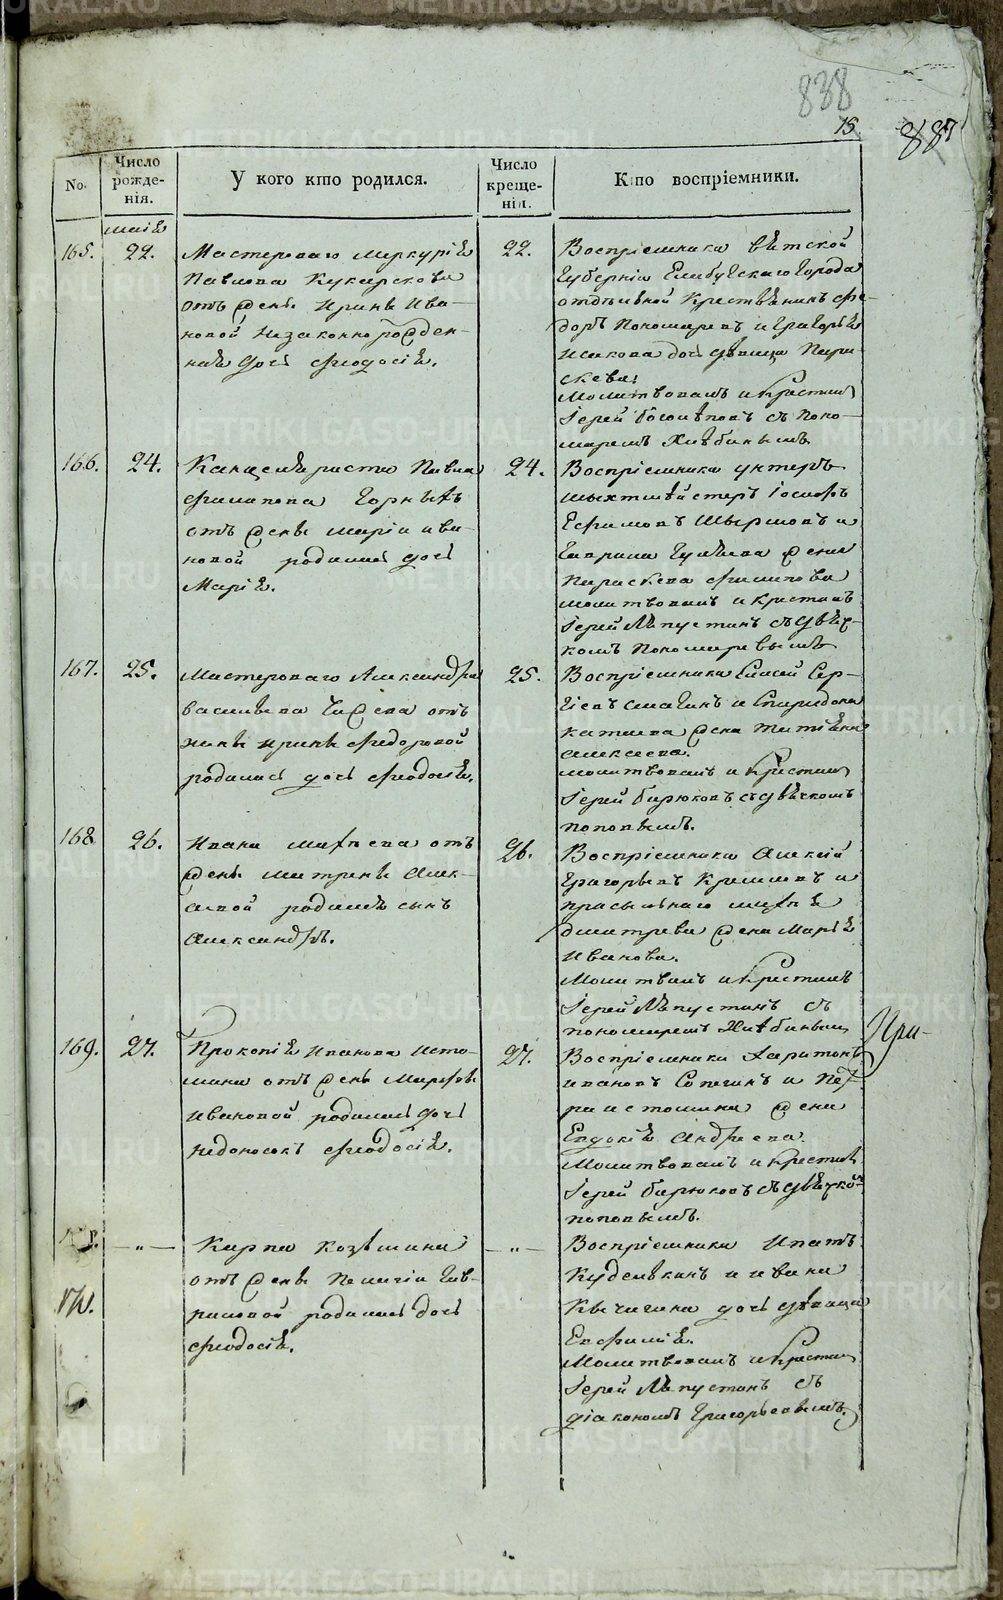 838
15.
No.
Число
рожде-
нія.
У кого кто родился.
Число
креще-
нія.
Кто воспріемники.
маія
165.
22.
Мастероваго Меркурія
Павлова
отъ жены Ирины Ива-
новой незаконнорожден-
ная дочь Феодосія.
22.
Воспріемники Вятской
Губерніи Елабужскаго города
Крестьянинъ Фе-
доръ Пономаревъ и Григорья
Исакова дочь дѣвица Пара-
скева;
Молитвовалъ и Крестилъ
Іерей Богомѣповъ съ Поно-
маремъ Хлѣбинымъ
166.
24.
Канцеляриста Павла
Филипова Горныхъ
отъ жены Маріи Ива-
новой родилась дочь
Марія.
24.
Воспріемники унтеръ
шихтмейстеръ Іосифъ
Ефимовъ и
Гаврила жена
Параскева Филипова
молитвовалъ и крестилъ
Іерей Лапустинъ съ дьяч-
комъ Пономаревымъ
167.
25.
Мастероваго Александра
Васильева отъ
жены Ирины Федоровой
родилась дочь Феодосія.
25.
Воспріемники Елисей Сер-
гіевъ и Спиридона
жена Татіяна
Алексеева.
молитвовалъ и Крестилъ
Іерей Бирюковъ съ дьячкомъ
Поповымъ.
168
26.
Ивана Матвѣева отъ
жены Матрены Алек-
сѣевой родился сынъ
Александръ.
26.
Воспріемники Алексій
Григорьевъ и
присыльнаго
Дмитрева жена Марья
Иванова.
Молитвалъ и Крестилъ
Іерей Лапустинъ съ
пономаремъ Хлѣбинымъ
При-
169.
27.
Прокопія Иванова Исто-
мина отъ жены Марфы
Ивановой родилась дочь
недоносокъ Феодосія.
27.
Воспріемники Харитонъ
Ивановъ и Пет-
ра Истомина жена
Евдокія Андреева.
Молитвовалъ и Крестилъ
Іерей Бирюковъ съ дьячкомъ
Поповымъ.
— „ —
Карпа Козмина
отъ жены Пелагіи Гав-
риловой родилась дочь
Феодосія.
— „ —
Воспріемники Ипатъ
и Ивана
Кычигина дочь дѣвица
Евфимія.
Молитвовалъ и Крестилъ
Іерей Лапустинъ съ
діакономъ Григорьевымъ.
METRIKI.GASO-URAL.RU